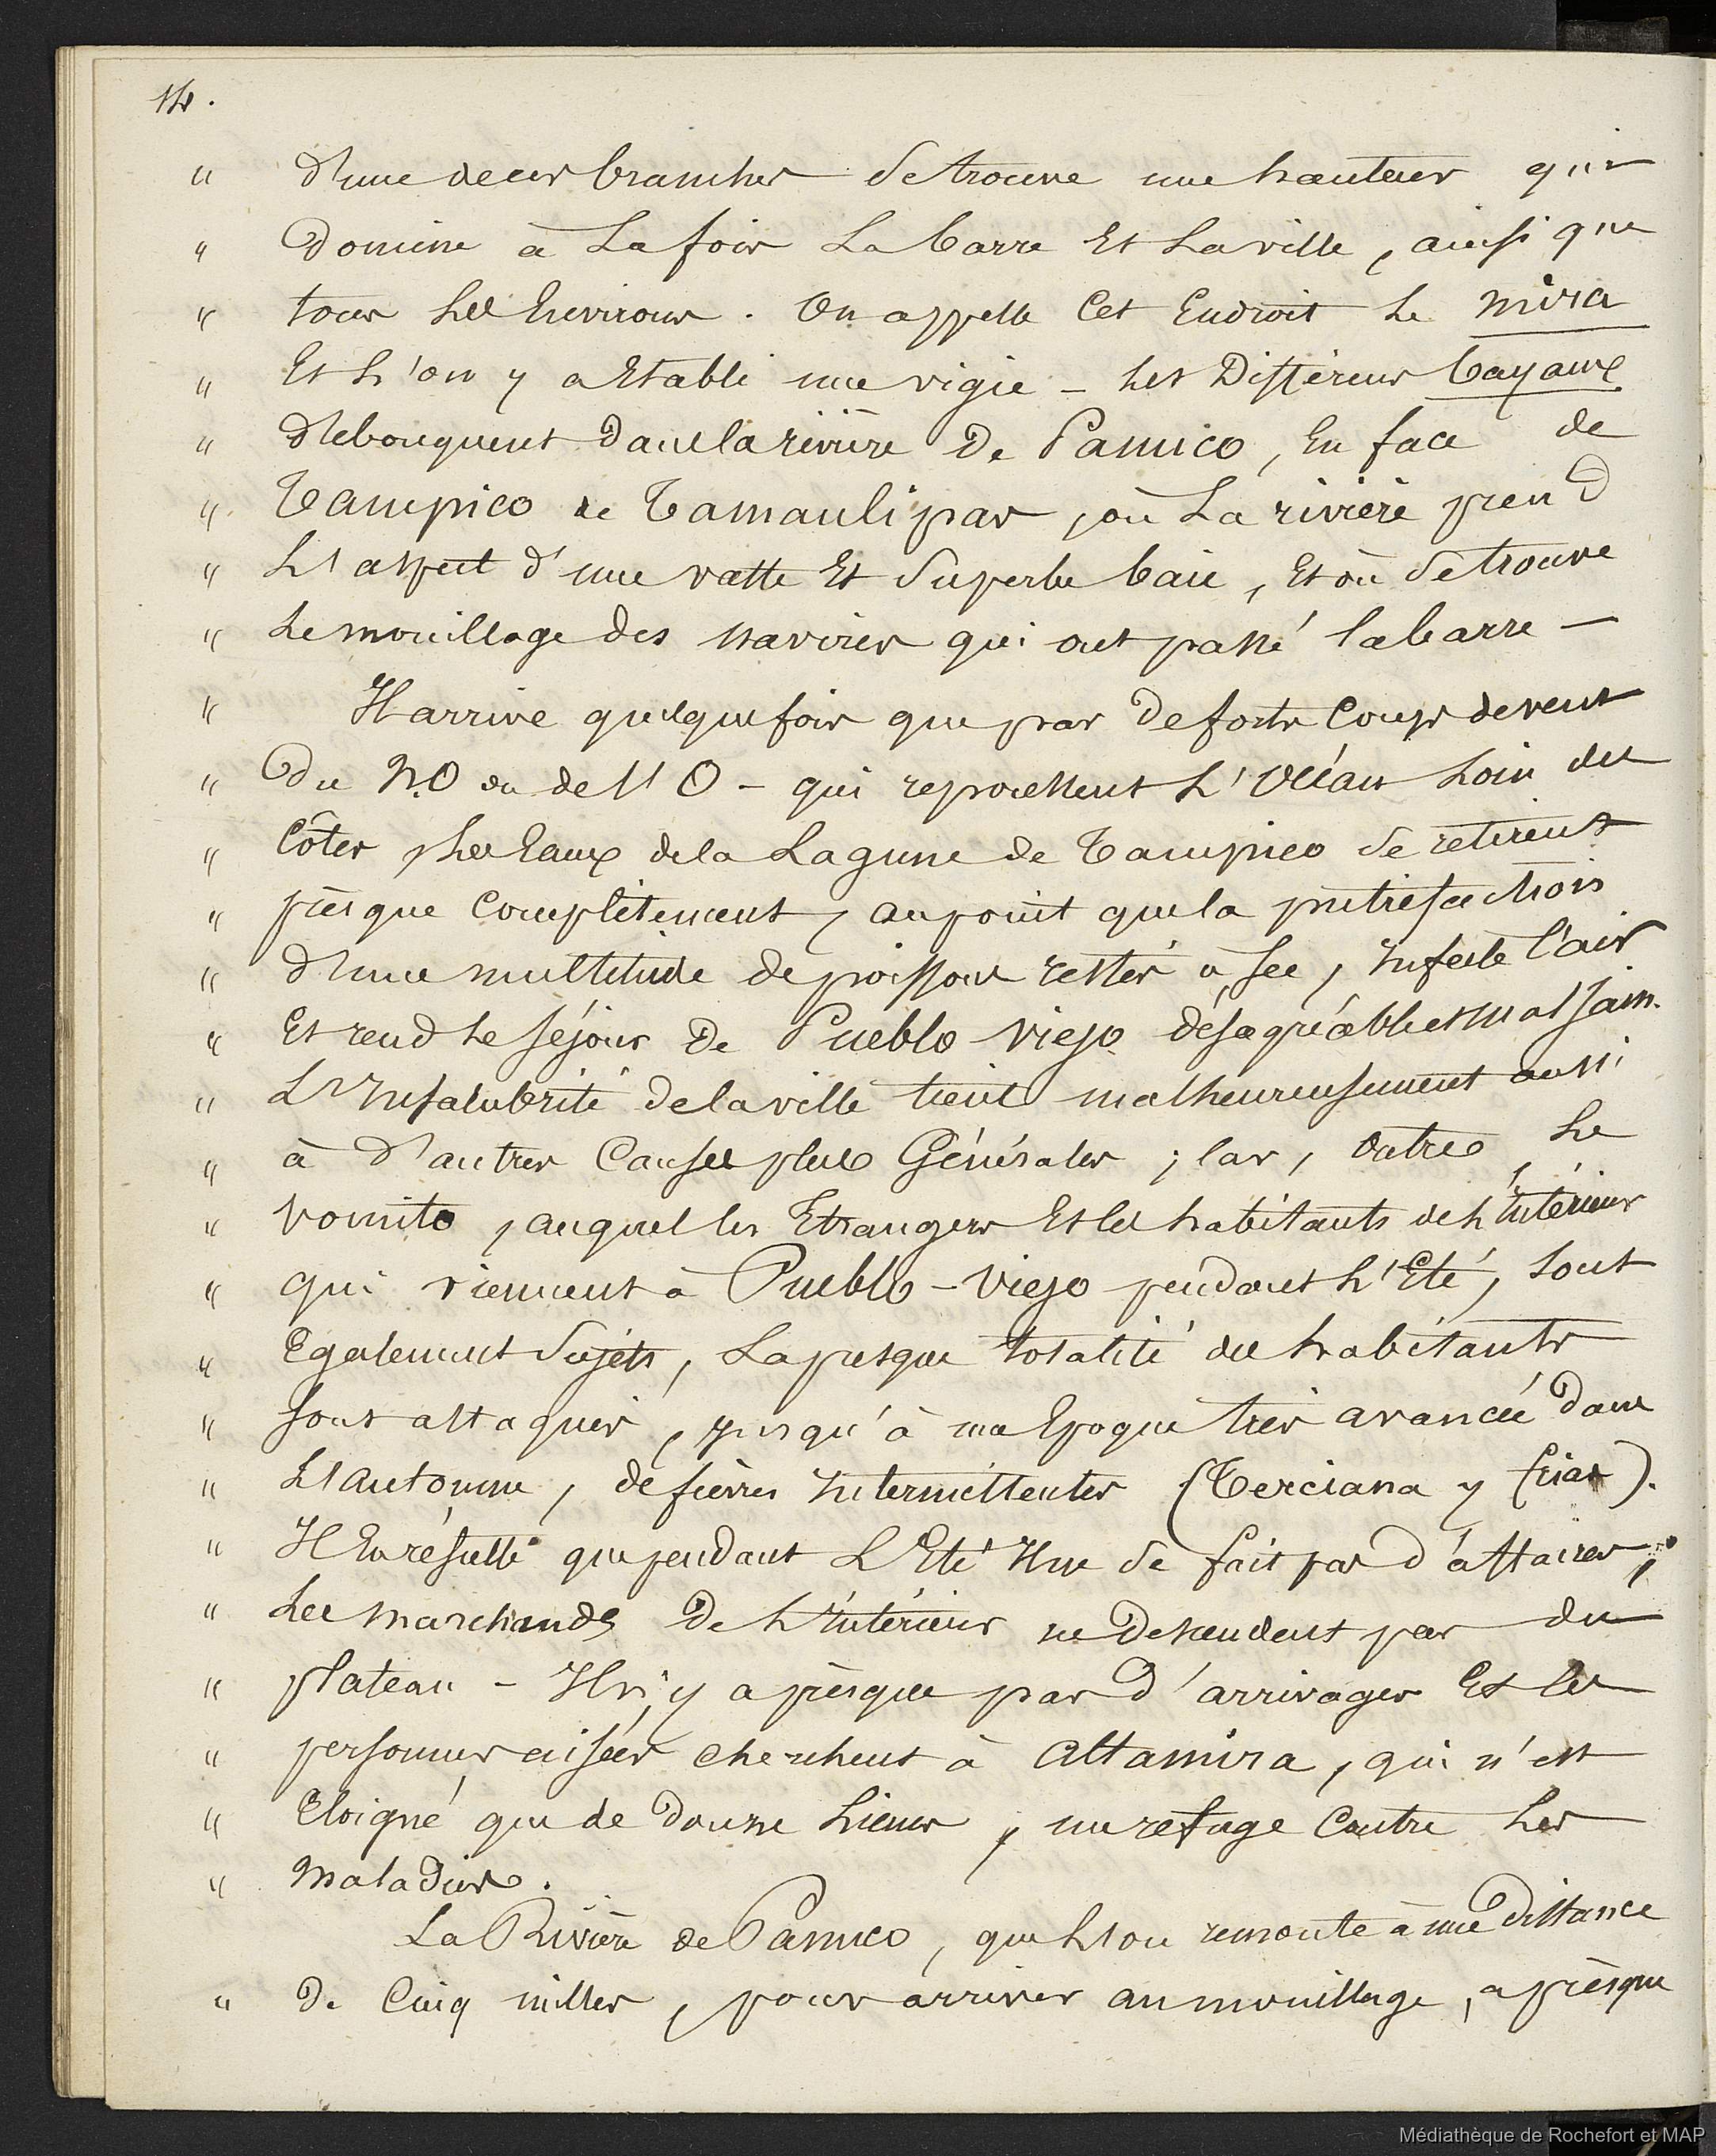 14.
" d'une de ces branches se trouve une hauteur qui
" Domine à La fois La barre Et La ville, ainsi que
" tous Les Environs. On appelle Cet Endroit Le mira
" Et L'on y a Etabli une vigie - Les Différens bayaux
" débouquent dans la rivière De Panuco, En face de
" Tampico de Tamaulipas, où La rivière prend
" L'aspect d'une vaste Et Superbe baie, Et où Se trouve
" Le mouillage des navires qui ont passé la barre -
" Il arrive quelquefois que par De forts Coups de vent
" Du N.O ou de l'O - qui repoussent L'Océan Loin des
" Côtes, Les Eaux de la Lagune de Tampico Se retirent
" présque Complètement, au point que la putréfaction
" d'une multitude de poissons restés à sec, Infecte l'air
" Et rend Le séjour De Pueblo viejo désagréable et mal sain.
" L'Insalubrité de la ville tient malheureusement aussi
" à d'autres Causes plus Générales ; Car, outre, Le
" vomito, auquel les Etrangers Et les habitants de L'Intérieur
" qui viennent à Pueblo-Viejo pendant L'Eté, Sont
" Egalement Sujets, La presque totalité des habitants
" sont attaqués, jusqu'à une Epoque très avancée Dans
" L'automne, de fièvres Intermittentes (Terciana y frias).
" Il En résulte que pendant L'Eté Il ne Se fait pas d'affaires,
" Les marchands De L'Intérieur ne Descendent pas du
" plateau - Il n'y a présque pas d'arrivages Et les
" personnes aisées cherchent à Altamira, qui n'est
" Eloigné que de Douze Lieues, un refuge Contre Les
" Maladies.
La Rivière de Panuco, que L'on remonte à une Distance
" De Cinq milles, pour arriver au mouillage, a présque
Médiathèque de Rochefort et MAP